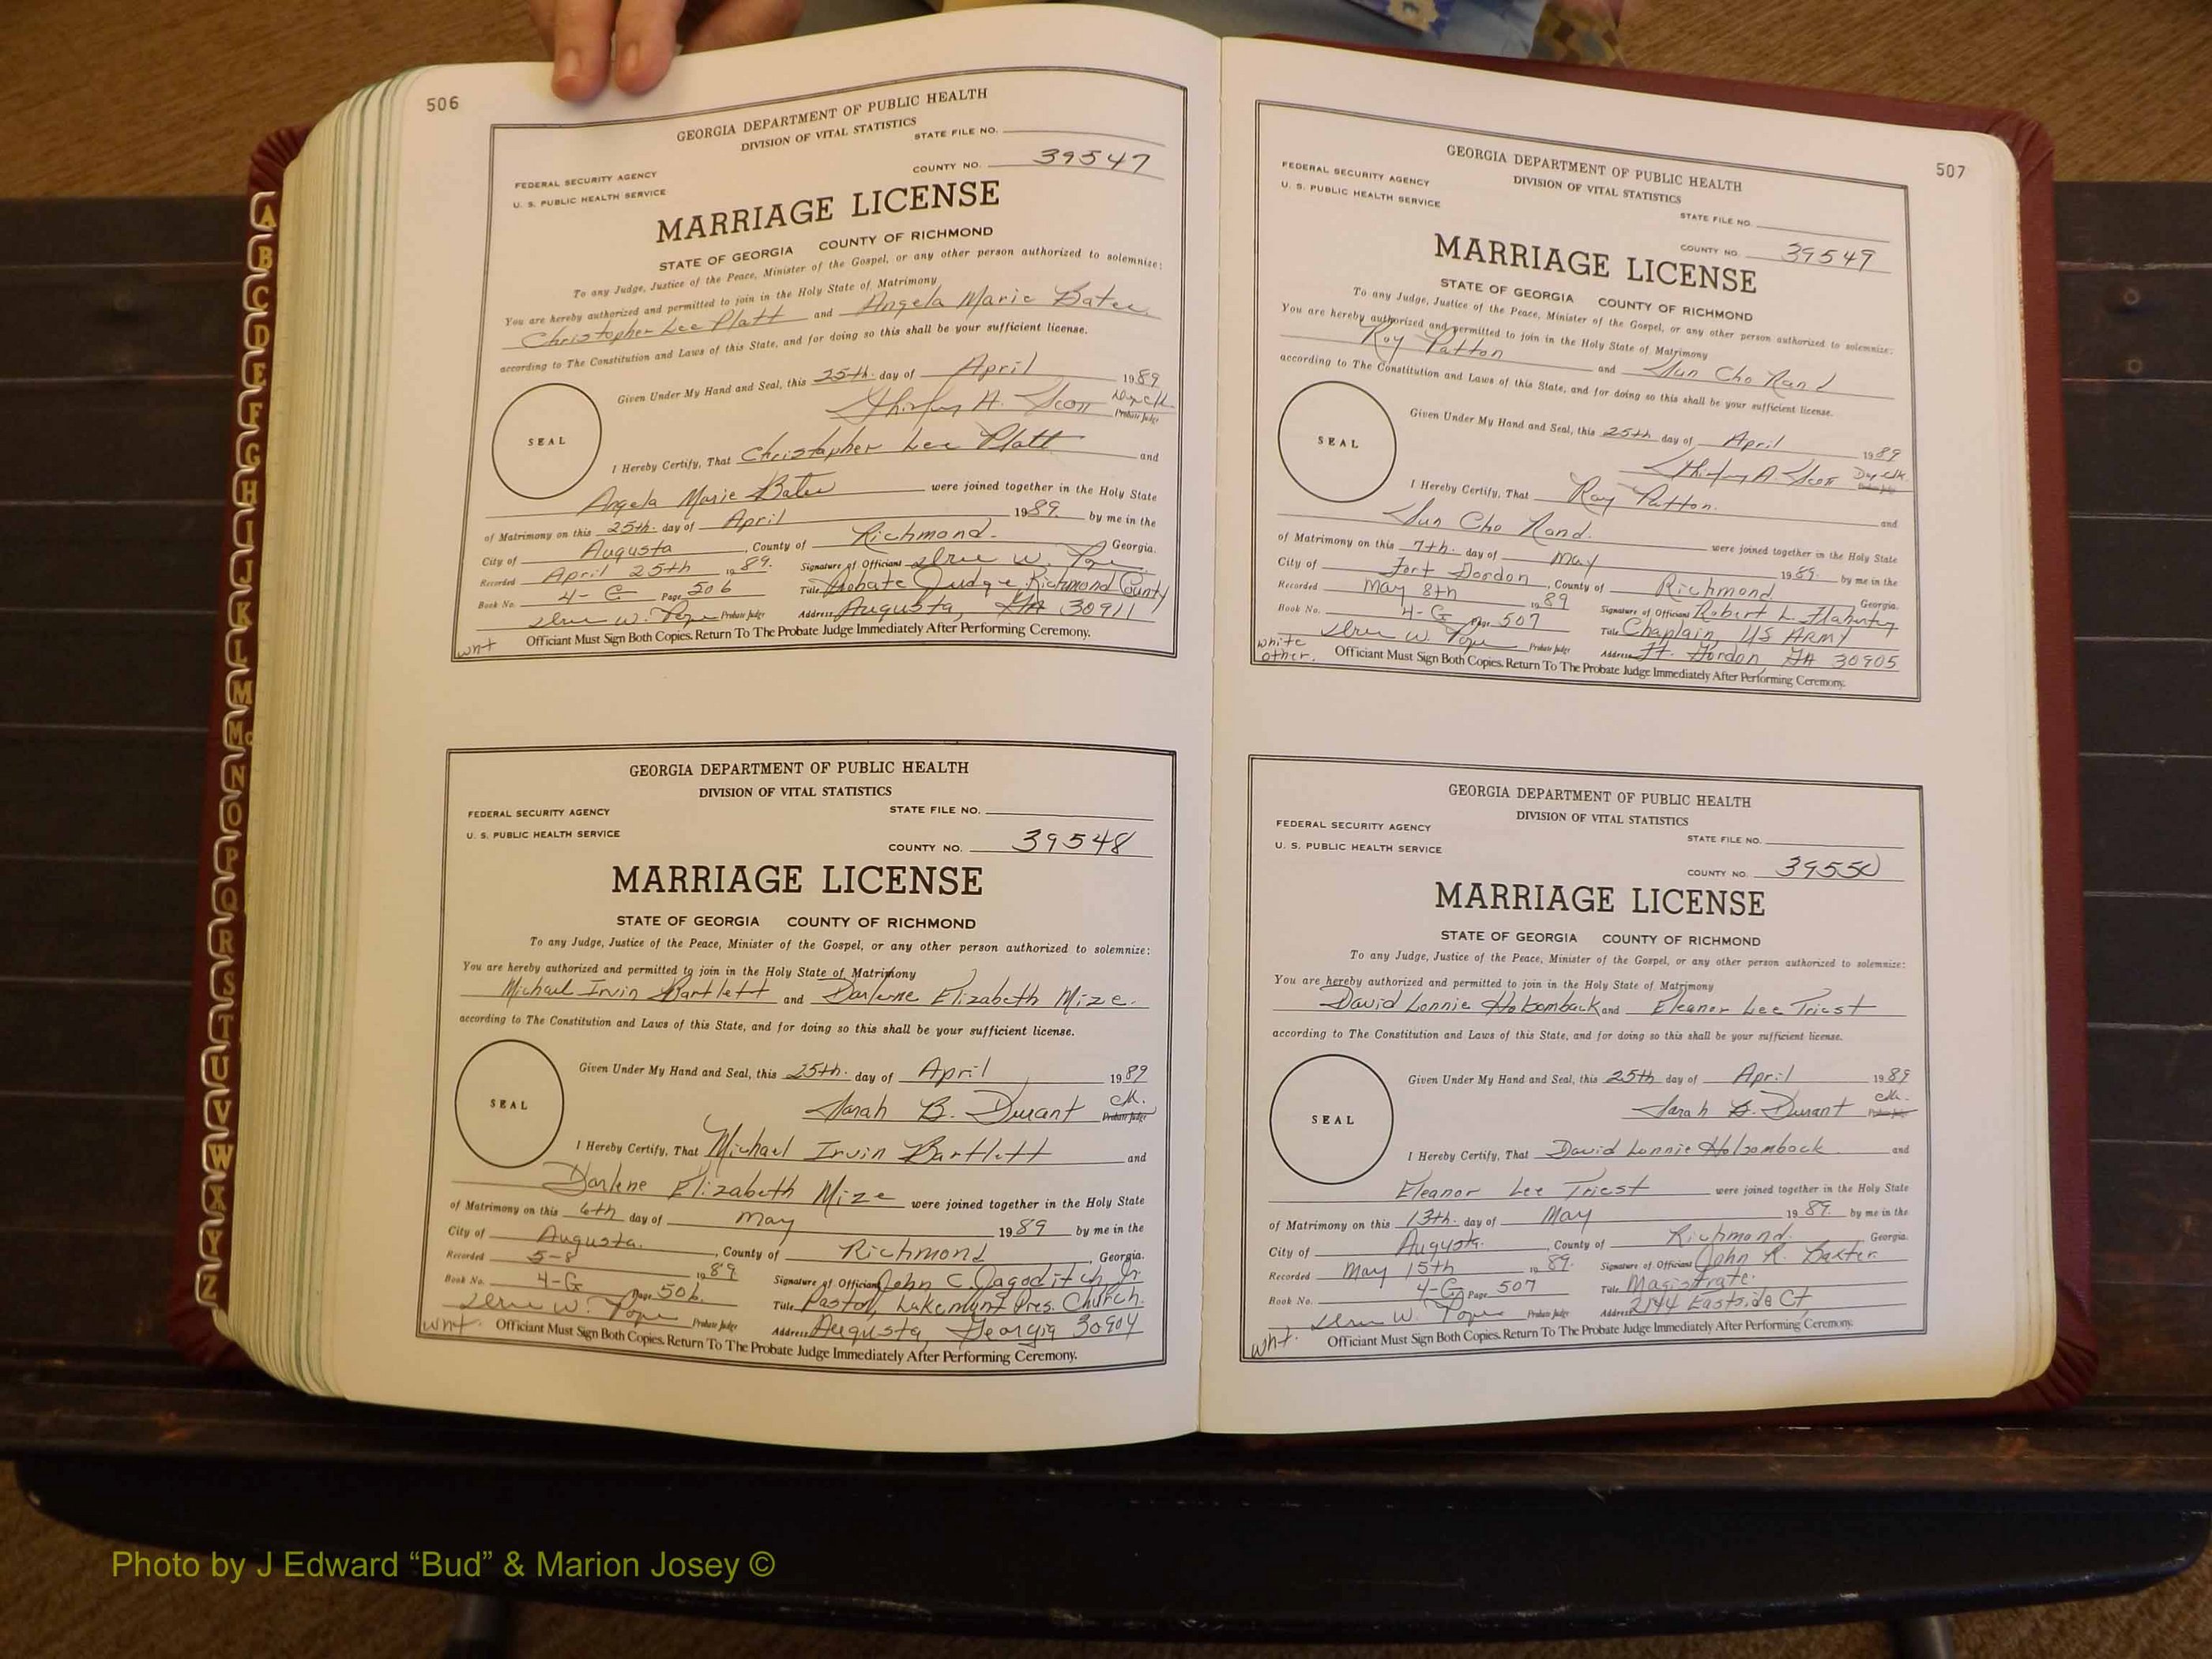 506
GEORGIA DEPARTMENT OF PUBLIC HEALTH
DIVISION OF VITAL STATISTICS
STATE FILE NO.
FEDERAL SECURITY AGENCY
U. S. PUBLIC HEALTH SERVICE
COUNTY NO. 39547
MARRIAGE LICENSE
STATE OF GEORGIA COUNTY OF RICHMOND
To any Judge, Justice of the Peace, Minister of the Gospel, or any other person authorized to solemnize:
You are hereby authorized and permitted to join in the Holy State of Matrimony
Christopher Lee Platt and Angela Marie
according to The Constitution and Laws of this State, and for doing so this shall be your sufficient license.
Given Under My Hand and Seal, this 25th. day of April 1989
Shirley A. Scott Dep clk.
Probate Judge
SEAL
I Hereby Certify, That Christopher Lee Platt and
Angela Marie were joined together in the Holy State
of Matrimony on this 25th. day of April 1989. by me in the
City of Augusta, County of Richmond. Georgia.
Recorded April 25th 1989. Signature of Officiant W. Pope
Book No. 4-G Page 506 Title Probate Judge Richmond County
W. Pope Probate Judge Address Augusta, GA 30911
wnt Officiant Must Sign Both Copies. Return To The Probate Judge Immediately After Performing Ceremony.
GEORGIA DEPARTMENT OF PUBLIC HEALTH
DIVISION OF VITAL STATISTICS
FEDERAL SECURITY AGENCY STATE FILE NO.
U. S. PUBLIC HEALTH SERVICE
COUNTY NO. 39548
MARRIAGE LICENSE
STATE OF GEORGIA COUNTY OF RICHMOND
To any Judge, Justice of the Peace, Minister of the Gospel, or any other person authorized to solemnize:
You are hereby authorized and permitted to join in the Holy State of Matrimony
Michael Irvin Bartlett and Darlene Elizabeth Mize.
according to The Constitution and Laws of this State, and for doing so this shall be your sufficient license.
Given Under My Hand and Seal, this 25th. day of April 1989
Sarah B. Durant Clk.
Probate Judge
SEAL
I Hereby Certify, That Michael Irvin Bartlett and
Darlene Elizabeth Mize were joined together in the Holy State
of Matrimony on this 6th day of May 1989 by me in the
City of Augusta. , County of Richmond , Georgia.
Recorded 5-8 1989 Signature of Officiant John C. Jagoditch Jr
Book No. 4-G Page 506. Title Pastor, Lakemont Pres. Church.
W. Pope Probate Judge Address Augusta, Georgia 30904
wnt. Officiant Must Sign Both Copies. Return To The Probate Judge Immediately After Performing Ceremony.
507
GEORGIA DEPARTMENT OF PUBLIC HEALTH
DIVISION OF VITAL STATISTICS
FEDERAL SECURITY AGENCY
U. S. PUBLIC HEALTH SERVICE
STATE FILE NO.
COUNTY NO. 39549
MARRIAGE LICENSE
STATE OF GEORGIA COUNTY OF RICHMOND
To any Judge, Justice of the Peace, Minister of the Gospel, or any other person authorized to solemnize:
You are hereby authorized and permitted to join in the Holy State of Matrimony
Roy Patton and Sun Cho Rand
according to The Constitution and Laws of this State, and for doing so this shall be your sufficient license.
Given Under My Hand and Seal, this 25th day of April 1989
Shirley A Scott Dep clk.
Probate Judge
SEAL
I Hereby Certify, That Roy Patton. and
Sun Cho Rand. were joined together in the Holy State
of Matrimony on this 7th. day of May 1989. by me in the
City of Fort Gordon , County of Richmond Georgia.
Recorded May 8th 1989 Signature of Officiant Robert L. Flaherty
Book No. 4-G Page 507 Title Chaplain, US ARMY
W. Pope Probate Judge Address Ft. Gordon, GA 30905
white
other. Officiant Must Sign Both Copies. Return To The Probate Judge Immediately After Performing Ceremony.
GEORGIA DEPARTMENT OF PUBLIC HEALTH
DIVISION OF VITAL STATISTICS
FEDERAL SECURITY AGENCY STATE FILE NO.
U. S. PUBLIC HEALTH SERVICE
COUNTY NO. 39550
MARRIAGE LICENSE
STATE OF GEORGIA COUNTY OF RICHMOND
To any Judge, Justice of the Peace, Minister of the Gospel, or any other person authorized to solemnize:
You are hereby authorized and permitted to join in the Holy State of Matrimony
David Lonnie Holsomback and Eleanor Lee Triest
according to The Constitution and Laws of this State, and for doing so this shall be your sufficient license.
Given Under My Hand and Seal, this 25th day of April 1989
Sarah B. Durant Clk.
Probate Judge
SEAL
I Hereby Certify, That David Lonnie Holsomback and
Eleanor Lee Triest were joined together in the Holy State
of Matrimony on this 13th. day of May 1989. by me in the
City of Augusta. , County of Richmond. Georgia.
Recorded May 15th 1989. Signature of Officiant John R. Baxter
Book No. 4-G Page 507 Title Magistrate.
W. Pope Probate Judge Address 2144 Eastside Ct
wnt. Officiant Must Sign Both Copies. Return To The Probate Judge Immediately After Performing Ceremony.
A
B
C
D
E
F
G
H
I
J
K
L
M
Mc
N
O
P
Q
R
S
T
U
V
W
X
Y
Z
Photo by J Edward “Bud” & Marion Josey ©